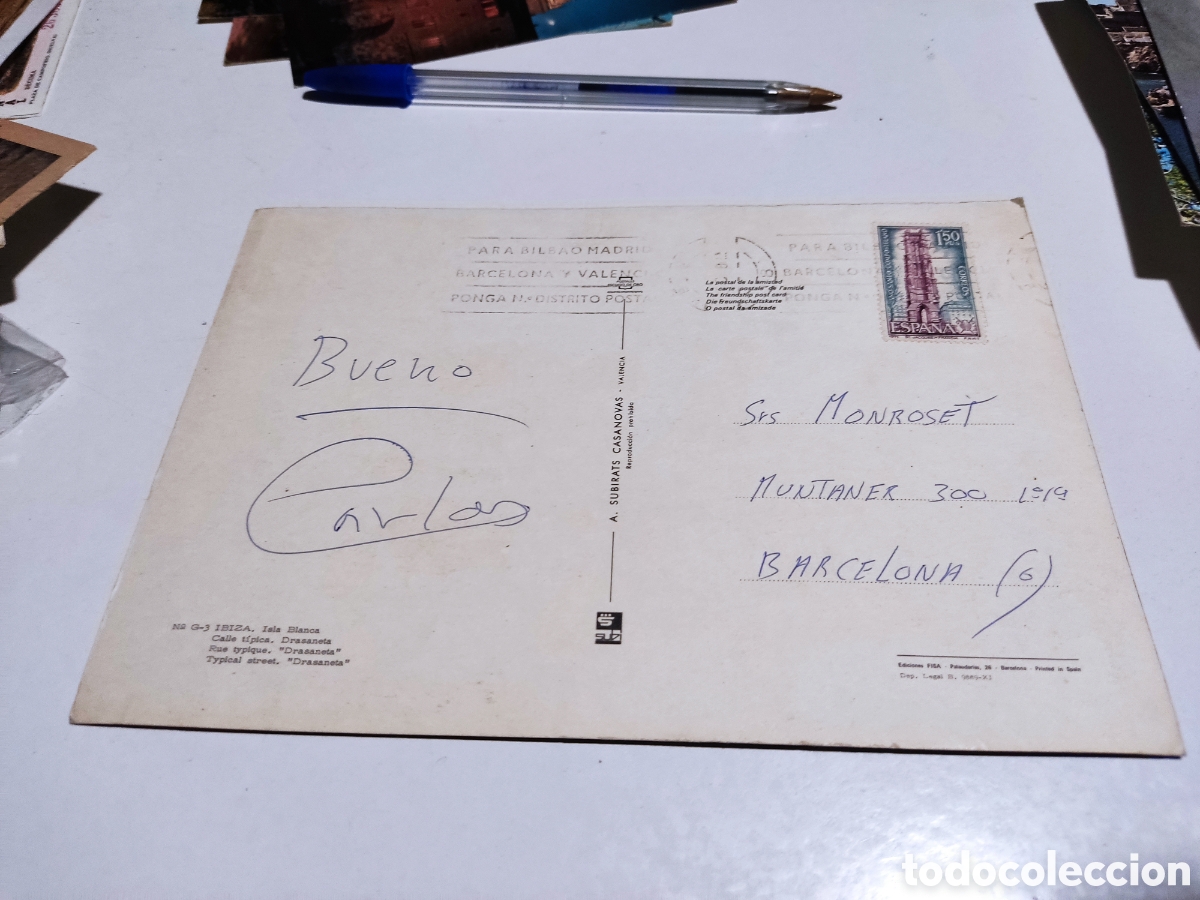 PARA BILBAO MADRID
BARCELONA Y VALENCI
PONGA Nº DISTRITO POSTA
PARA BIL
BARCELONA
PONGA Nº D
1,50
CORREOS
ESPAÑA
La postal de la amistad
La carte postale de l'amitié
The friendship post card
Die freundschaftskarte
O postal da amizade
Bueno
Carlos
A. SUBIRATS CASANOVAS - VALENCIA
Reproducción prohibida
Srs MONROSET
MUNTANER 300 1º 1ª
BARCELONA (6)
Nº G-3 IBIZA. Isla Blanca
Calle típica. Drasaneta
Rue typique. "Drasaneta"
Typical street. "Drasaneta"
Ediciones FISA - Palaudarias, 26 - Barcelona - Printed in Spain
Dep. Legal B. 5849-XI
todocoleccion